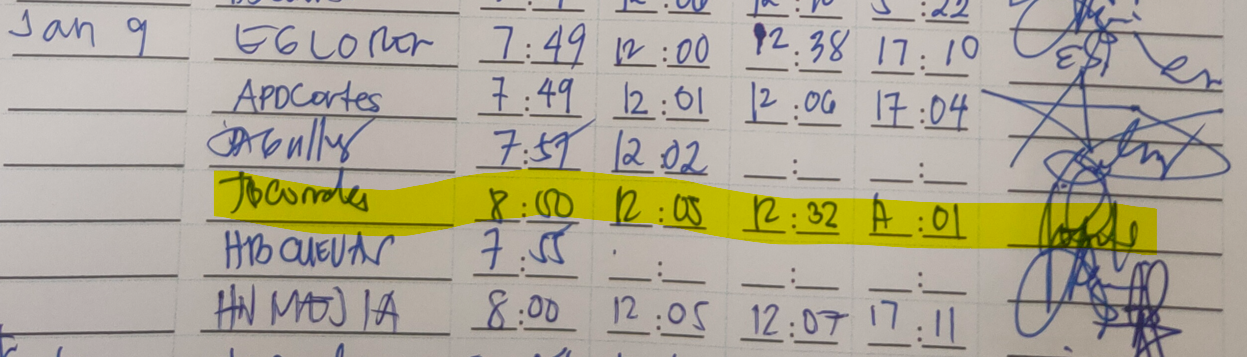 5:22
Jan 9 EGLORER 7:49 12:00 12:38 17:10
APDCortes 7:49 12:01 12:06 17:04
7:59 12:02 : :
8:00 12:05 12:32 A:01
HB CUEVAS 7:55 : : :
HN MAJIA 8:00 12:05 12:07 17:11